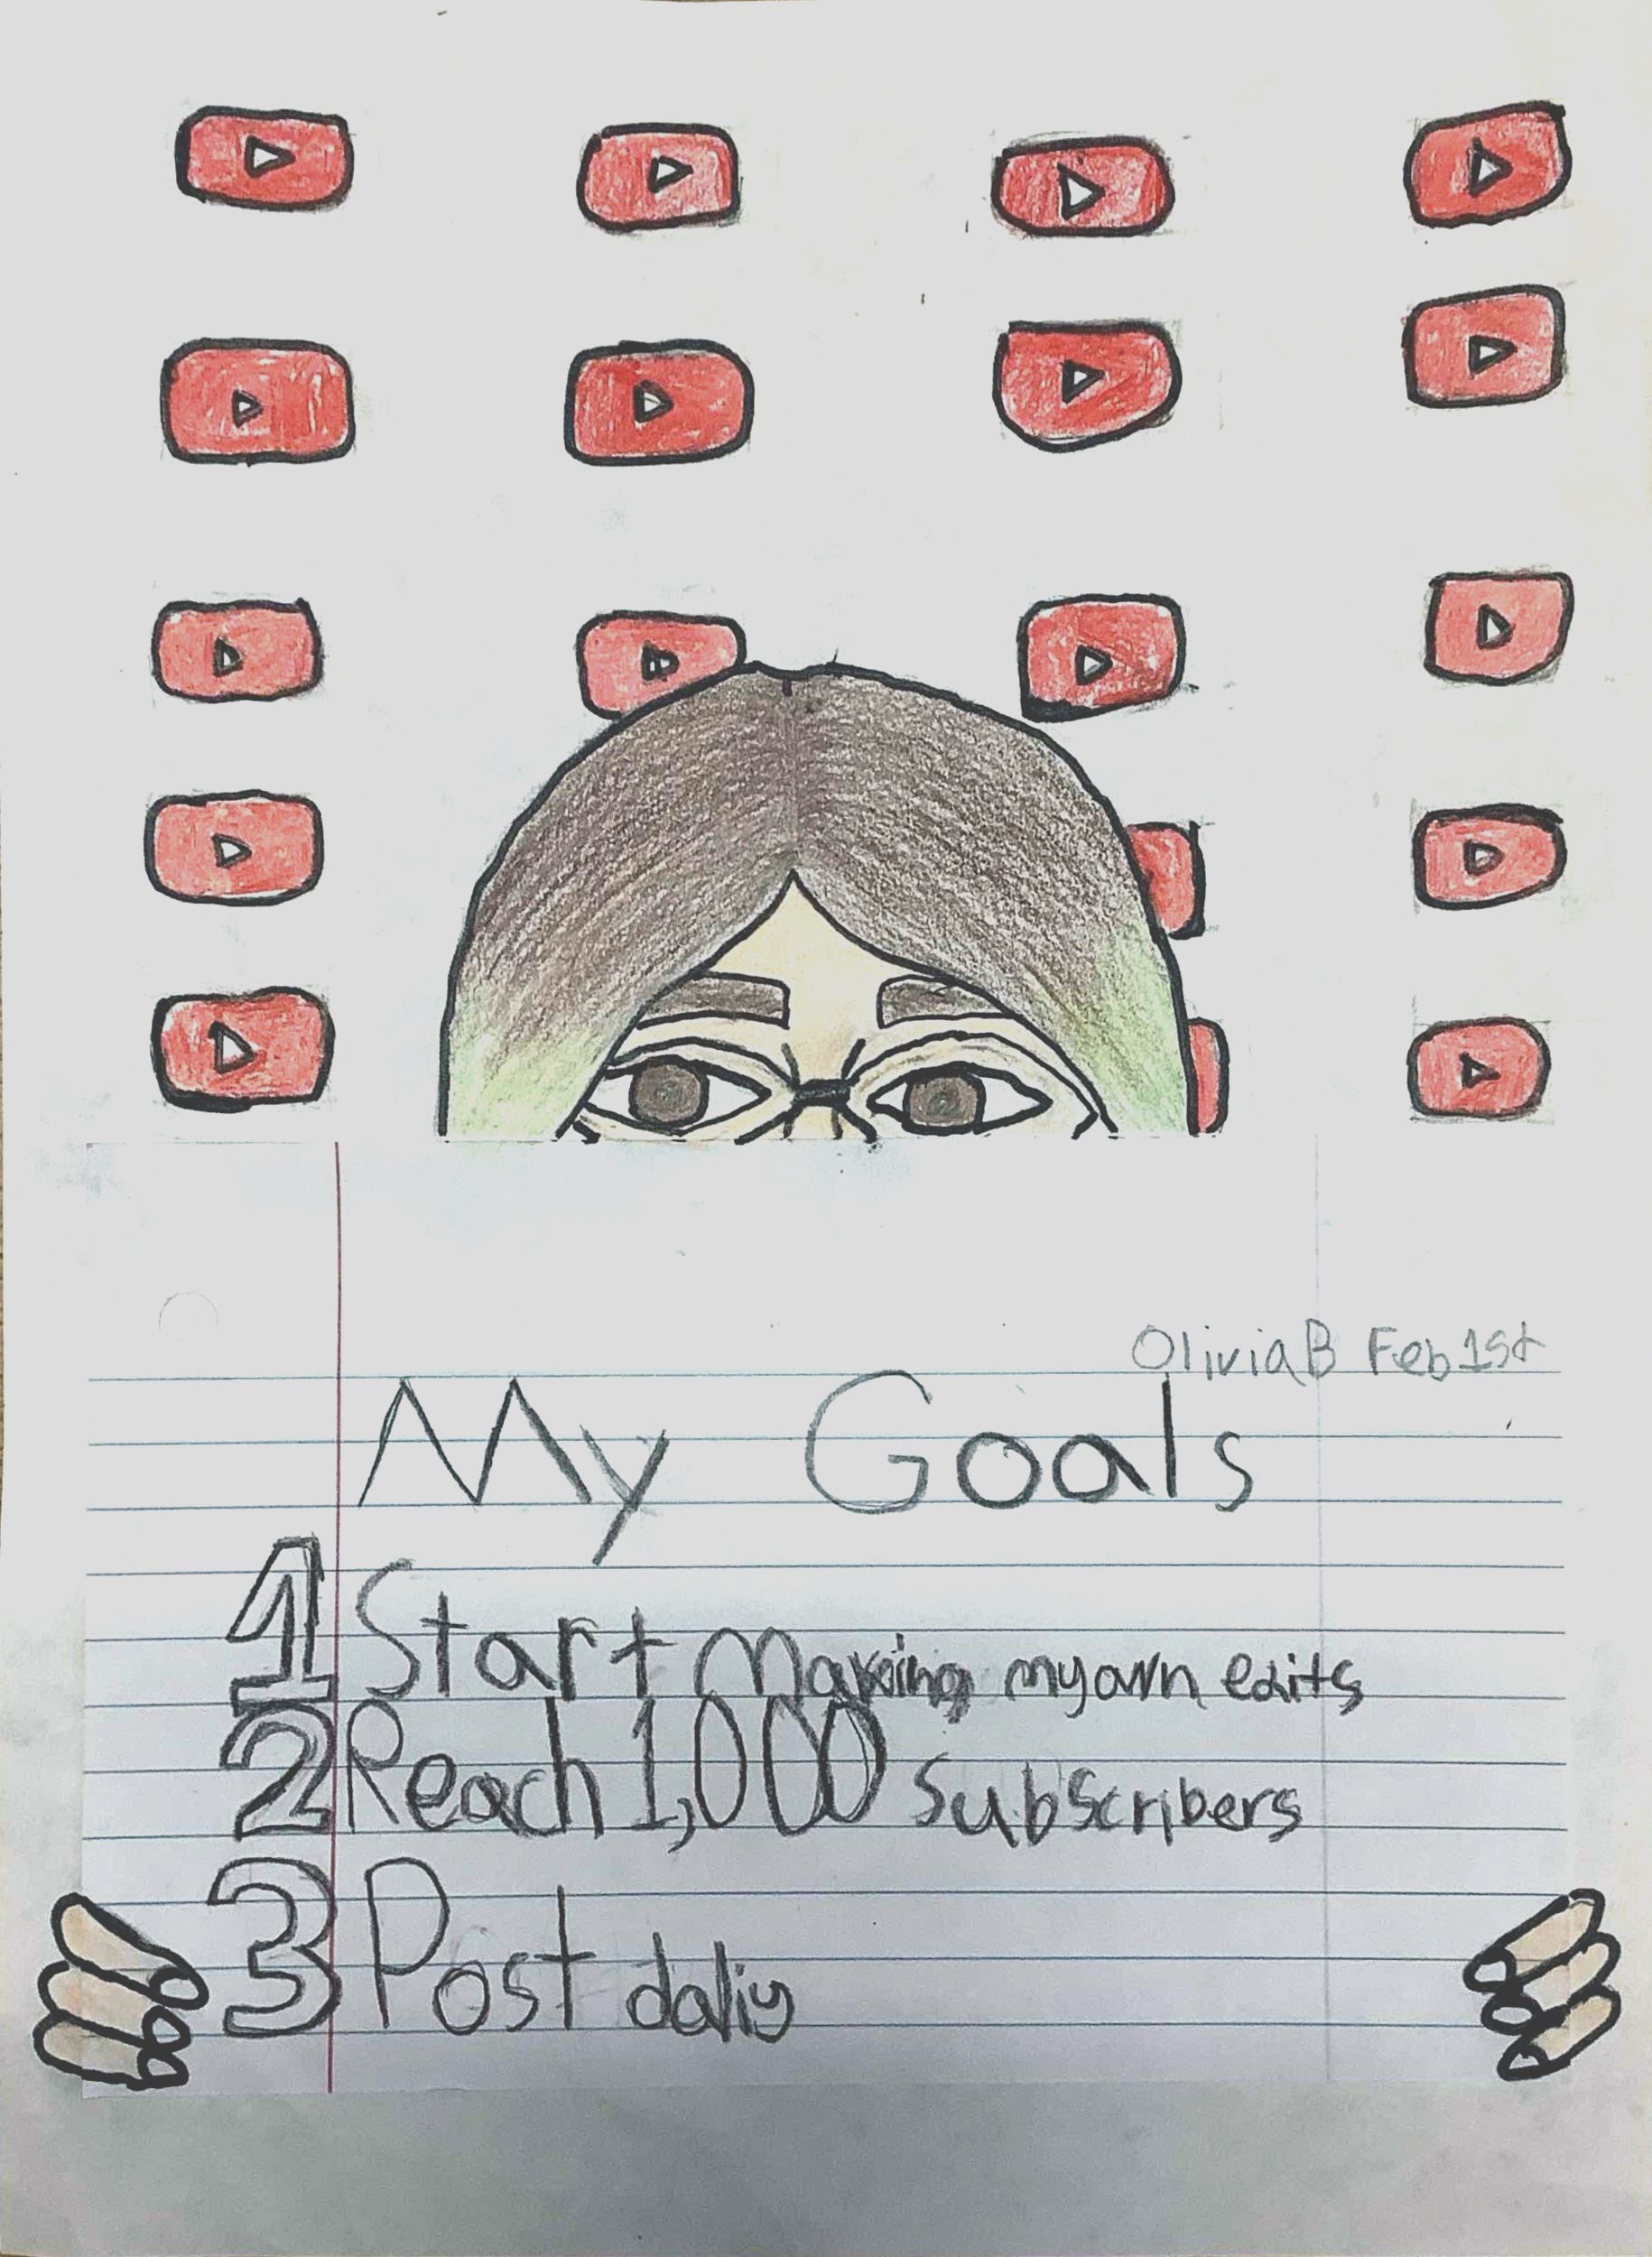 Olivia B Feb 1st
My Goals
1 Start making my own edits
2 Reach 1,000 subscribers
3 Post daliy